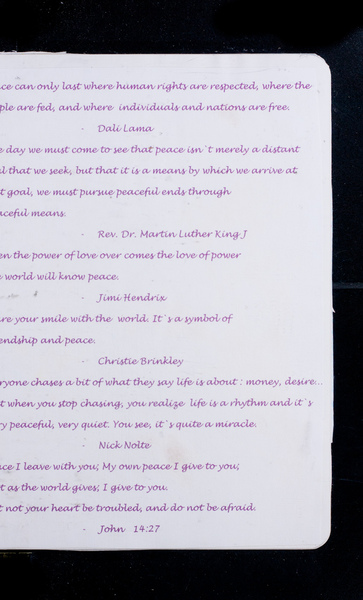 ce can only last where human rights are respected, where the
ple are fed, and where individuals and nations are free.
- Dali Lama
e day we must come to see that peace isn't merely a distant
l that we seek, but that it is a means by which we arrive at
t goal, we must pursue peaceful ends through
ceful means.
- Rev. Dr. Martin Luther King J
en the power of love over comes the love of power
e world will know peace.
- Jimi Hendrix
re your smile with the world. It's a symbol of
endship and peace.
- Christie Brinkley
ryone chases a bit of what they say life is about : money, desire...
t when you stop chasing, you realize life is a rhythm and it's
y peaceful, very quiet. You see, it's quite a miracle.
- Nick Nolte
ce I leave with you; My own peace I give to you;
t as the world gives; I give to you.
t not your heart be troubled, and do not be afraid.
- John 14:27